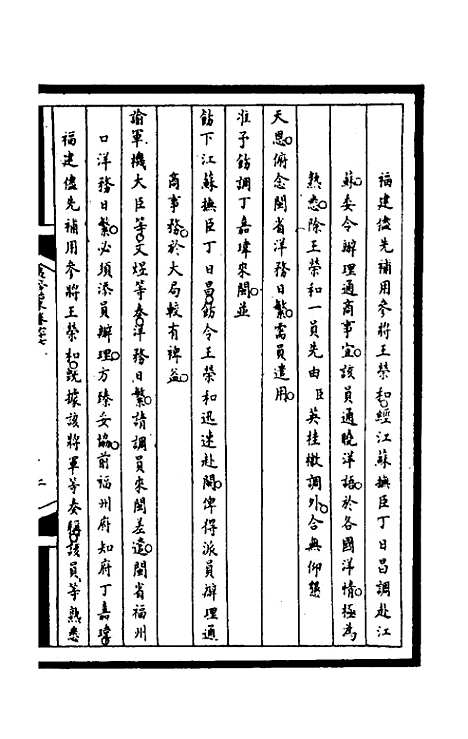 福建儘先補用參將王榮和。經江蘇撫臣丁日昌調赴江
蘇。委令辦理通商事宜。該員通曉洋語。於各國洋情。極為
熟悉。除王榮和一員先由臣英桂檄調外。合無仰懇
天恩。俯念閩省洋務日繁。需員遣用。
准予飭調丁嘉瑋來閩。並
飭下江蘇撫臣丁日昌。飭令王榮和迅速赴閩。俾得派員辦理通
商事務。於大局較有裨益。
諭軍機大臣等。文煜等奏。洋務日繁。請調員來閩差遣。閩省福州
口洋務日繁。必須添員辦理。方臻妥協。前福州府知府丁嘉瑋。
福建儘先補用參將王榮和。既據該將軍等奏稱。該員等熟悉